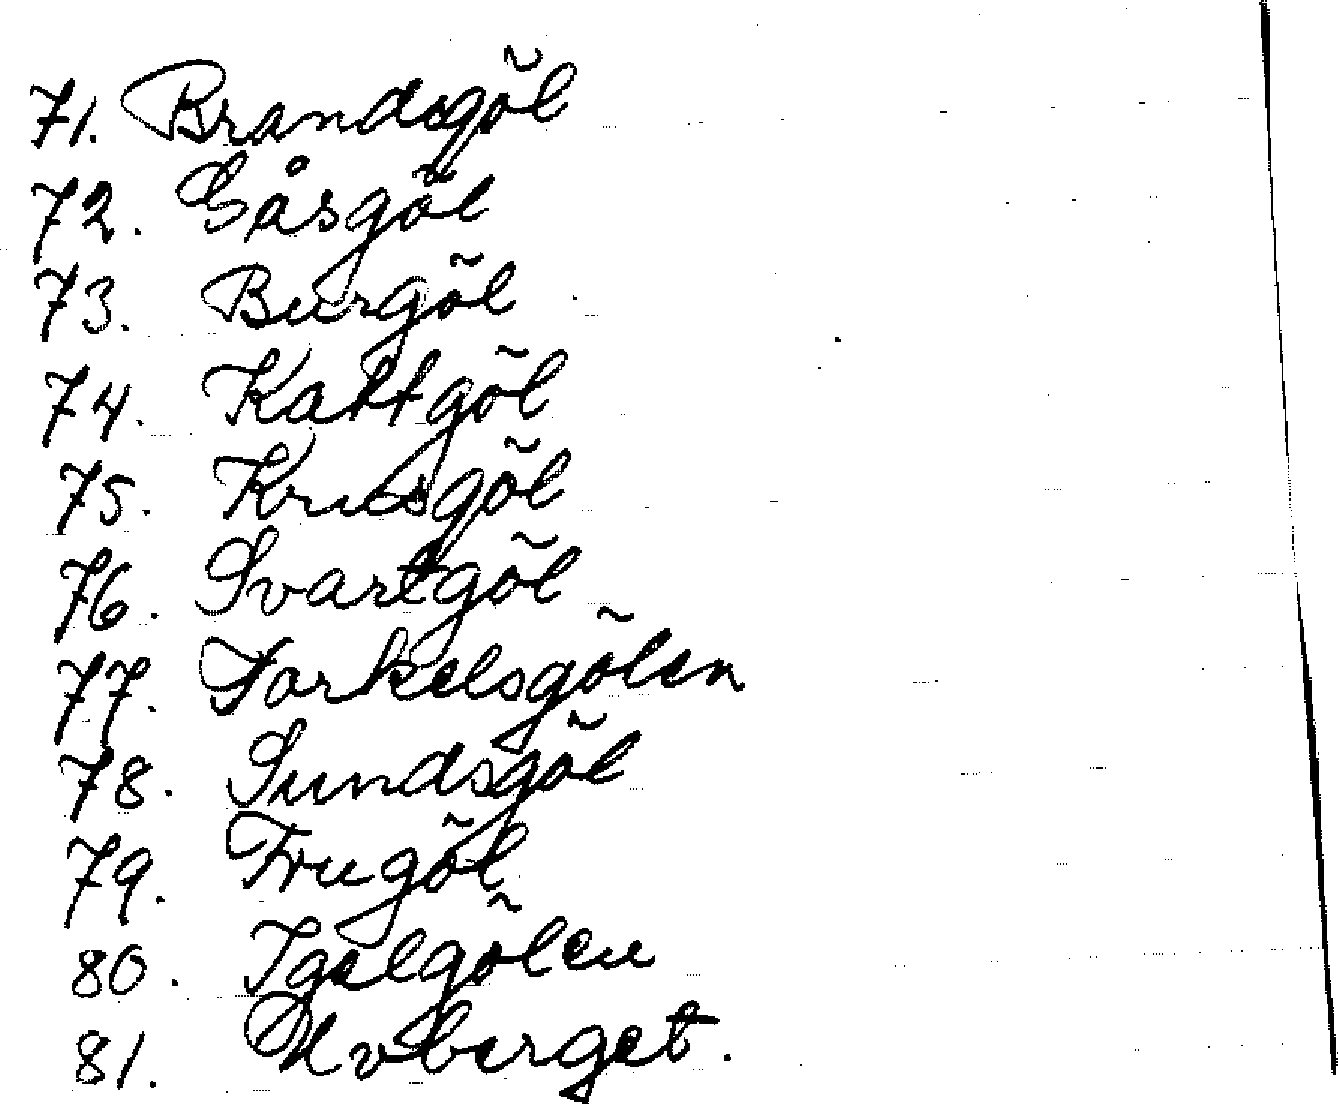 71. Brandsgöl
72. Gåsgöl
73. Burgöl
74. Kattgöl
75. Krusgöl
76. Svartgöl
77. Torkelsgölen
78. Sundsgöl
79. Frugöl
80. Igelgölen
81. Uvberget.